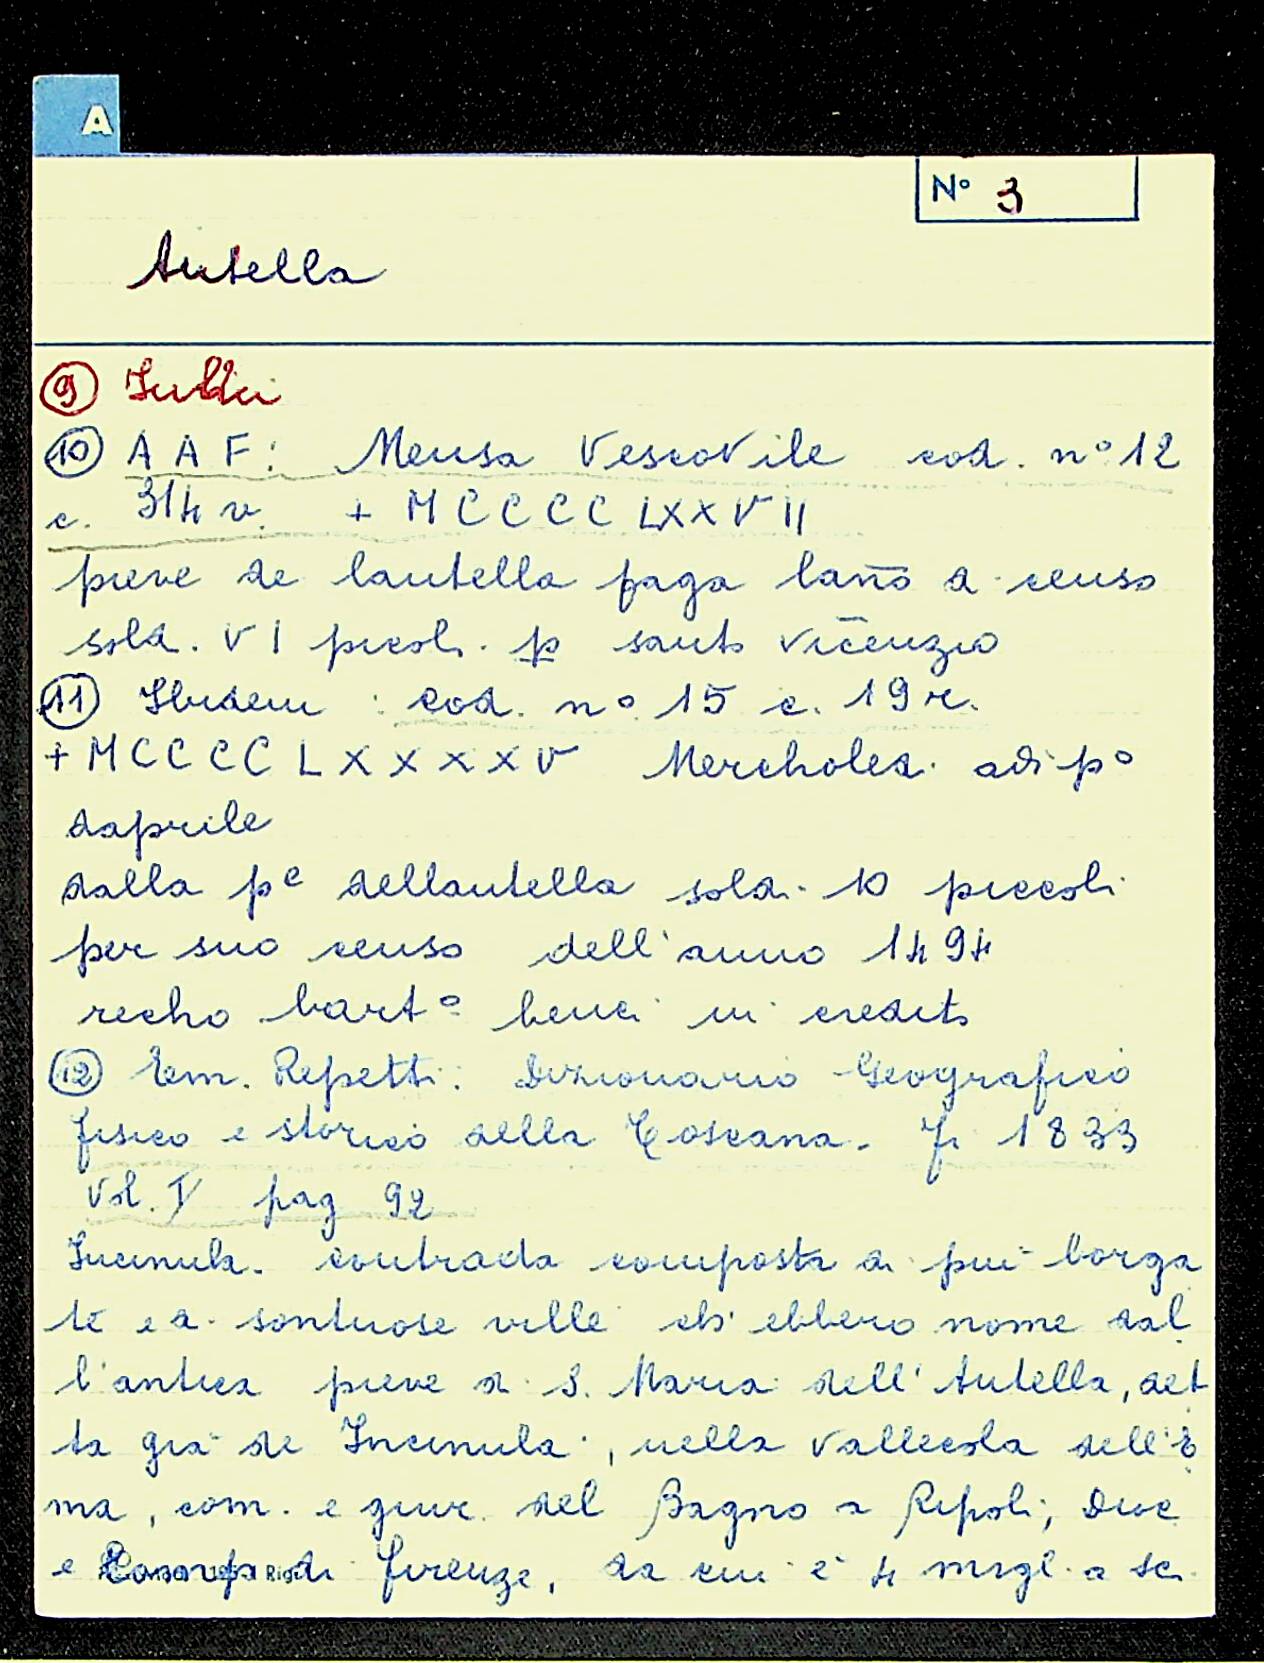 A
N° 3
Antella
⑨
⑩ A A F: Mensa Vescovile cod. n° 12
c. 314 v. + M C C C C L X X V II
pieve de lantella paga lan̄o d censo
sold. V I picoli. p santo Vic̄enzio
⑪ Ibidem : cod. n° 15 c. 19 r.
+ M C C C C L X X X X V Mercholed. adi p°
daprile
dalla pe dellantella sold. 10 piccoli
per suo censo dell'anno 1494
recho bart° benci in credito
⑫ Em. Repetti: Dizionario Geografico
fisico e storico della Toscana. Fi 1833
Vol. I pag 92
Incinula. contrada composta di più borga
te e di sontuose ville ch' ebbero nome dal
l'antica pieve di S. Maria dell'Antella, det
ta già de Incinula, nella Vallecola dell'E
ma, com. e giur. del Bagno a Ripoli; Dioc
e Comp. di Firenze, da cui è 4 migl. a sci.